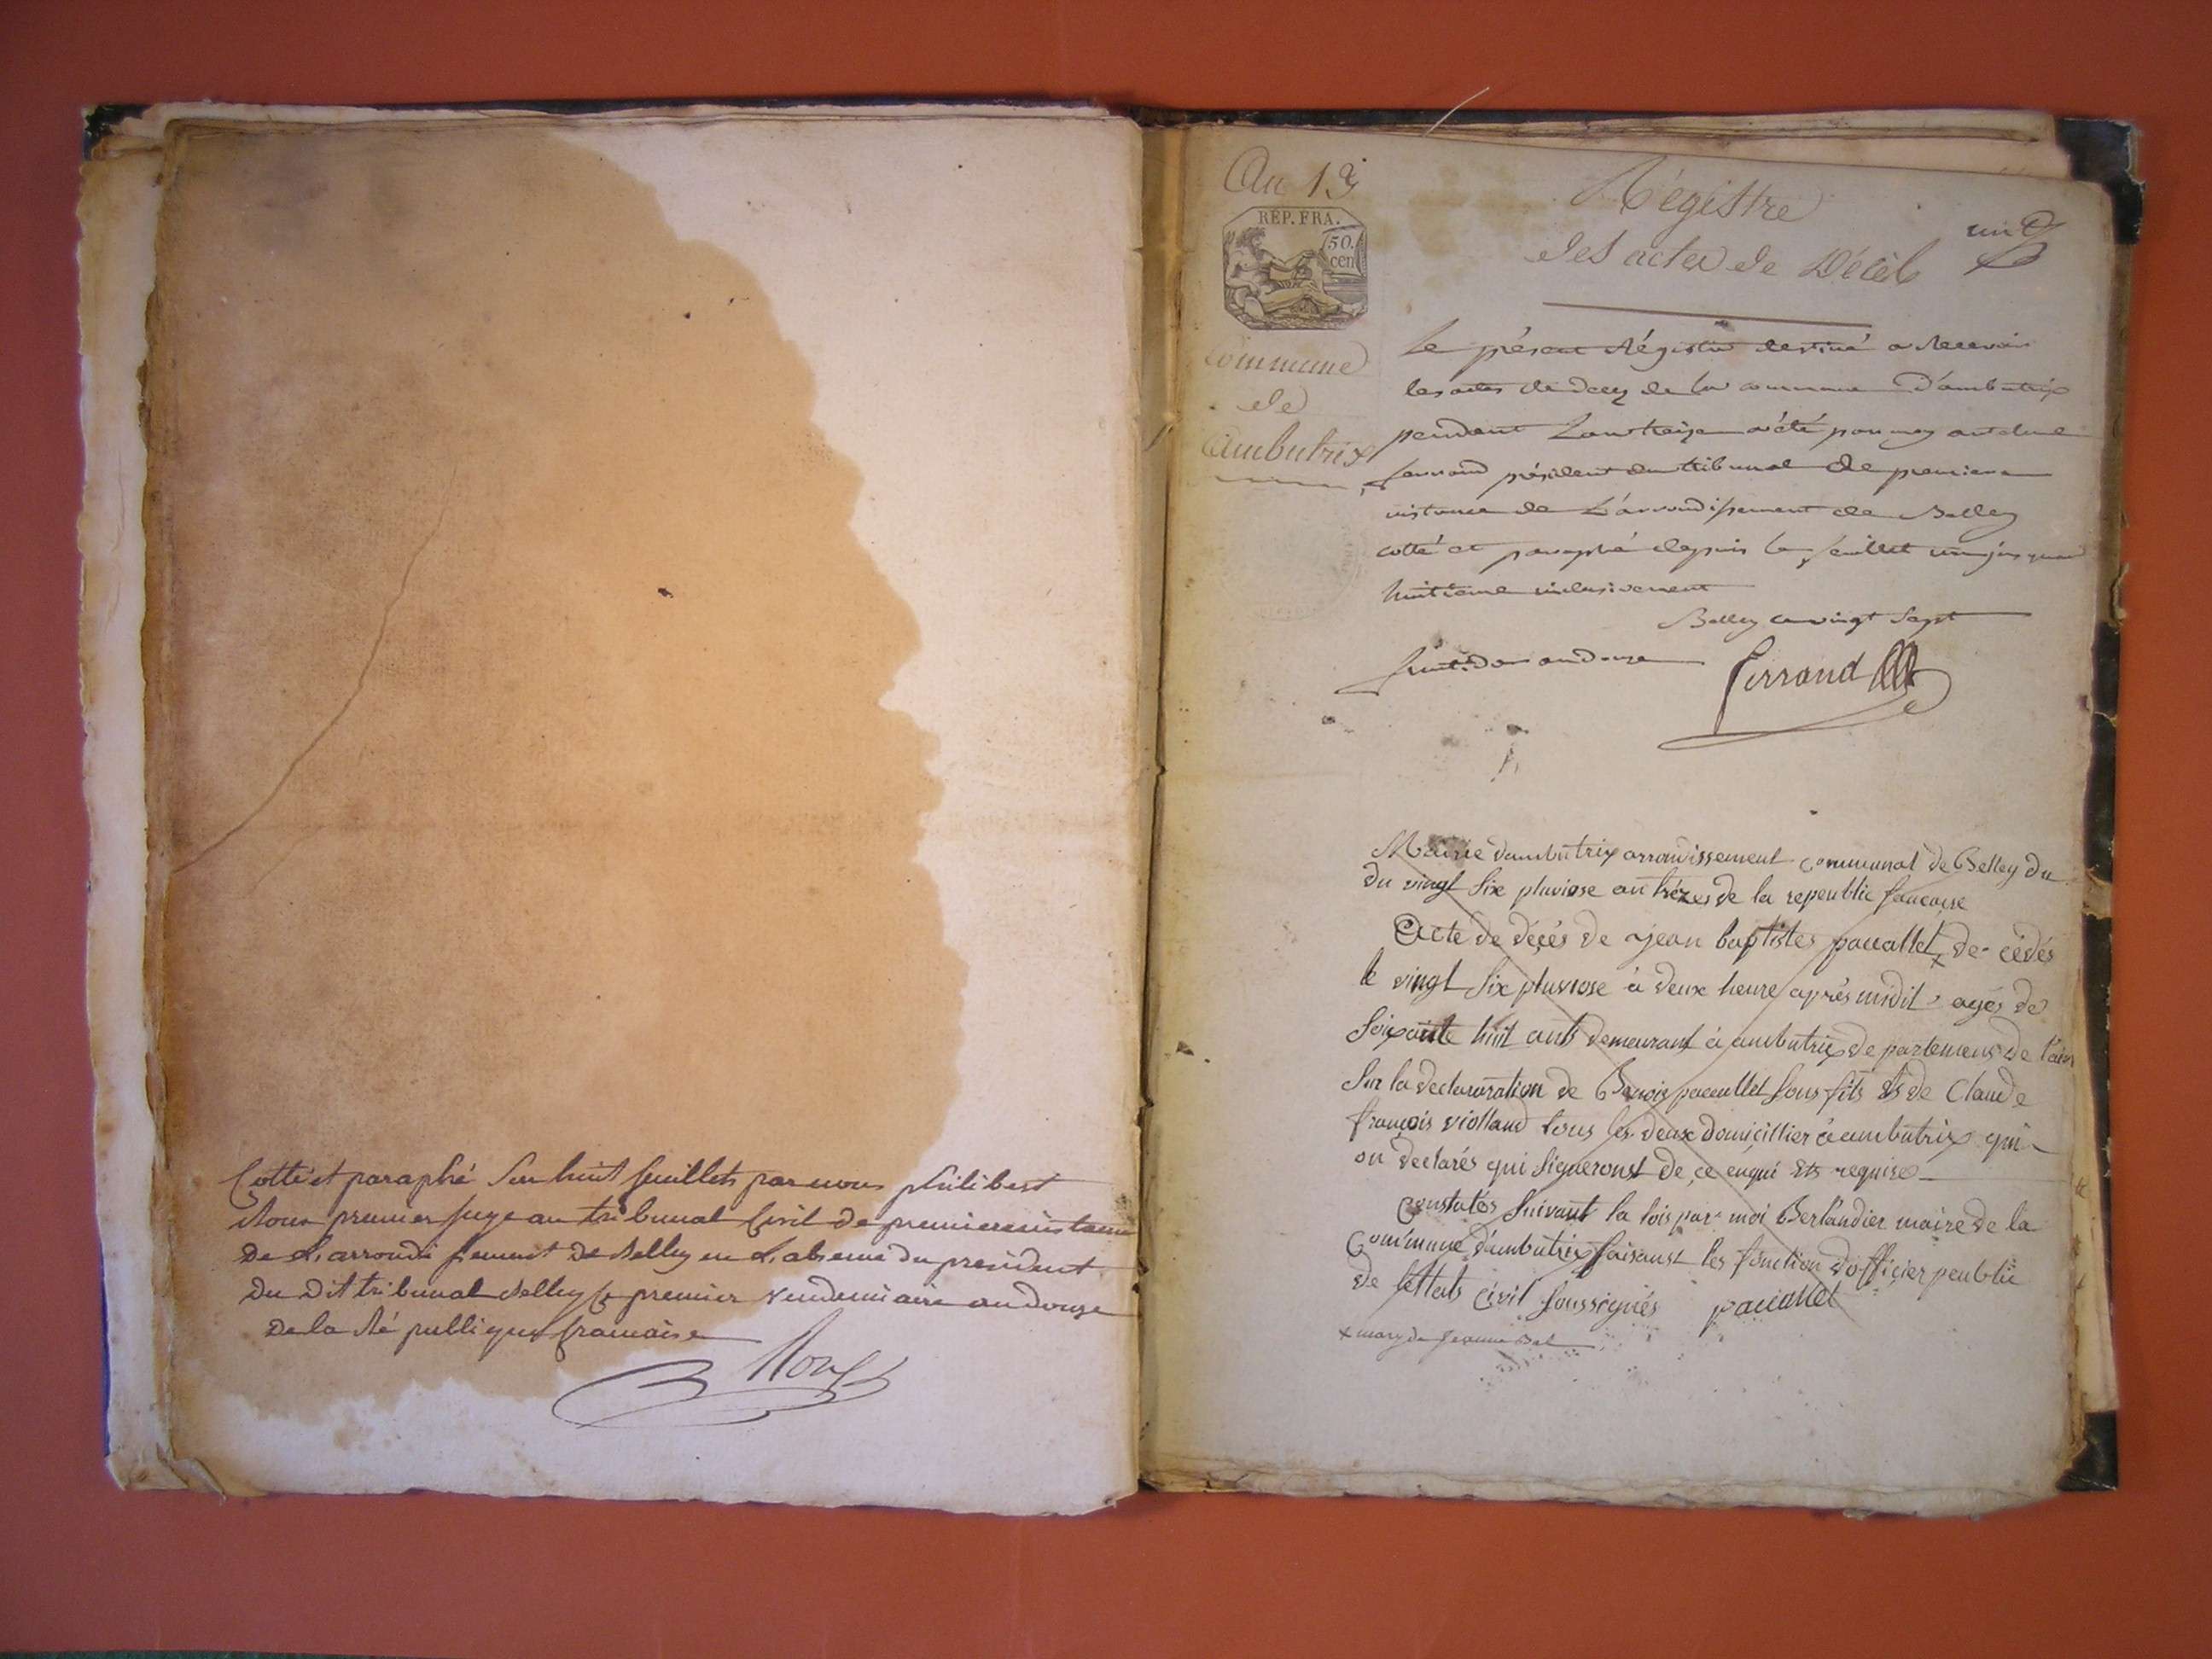 Cotté et paraphé Sur huit feuillets par nous philibert
premier juge au tribunal Civil de premiere instance
De L'arrondissement De Belley en L'absence du president
Du Dit tribunal Belley le premier vendemiaire an douze
De la République francaise
An 13
REP. FRA.
50.
cen
Commune
de
Ambutrix
Régistre
des actes de Décès
un
Le présent Régistre destiné a Recevoir
les actes de decez de la commune D'ambutrix
pendant L'an treize a été par moy antelme
ferrand président du tribunal de premiere
instance de L'arrondissement de Belley
cotté et paraphé depuis le feuillet un jusqu'au
huitieme inclusivement
Belley ce vingt Sept
fructidor an douze
ferrand
Mairie dambutrix arrondissement communal de Belley du
du vingt Six pluviose an trézes de la repeublic francoise
Acte de décés de jean baptistes pacallet x de-cédés
le vingt Six pluviose à deux heure après midit agés de
Soixante huit ants demeurant à ambutrix departement de l'ain
Sur la declararation de Benois paccallet Sous fils Ets de Claude
françois violland tous les deux domicillier à ambutrix qui
on declarés qui Signeronst de ce enqui Ets requise
Constatés Suivant la lois par moi Berlandier maire de la
Commune d'ambutrix faisanst les fonction d'officier peublic
de lettats Civil Soussignés pacallet
x mary de jeanne Bal